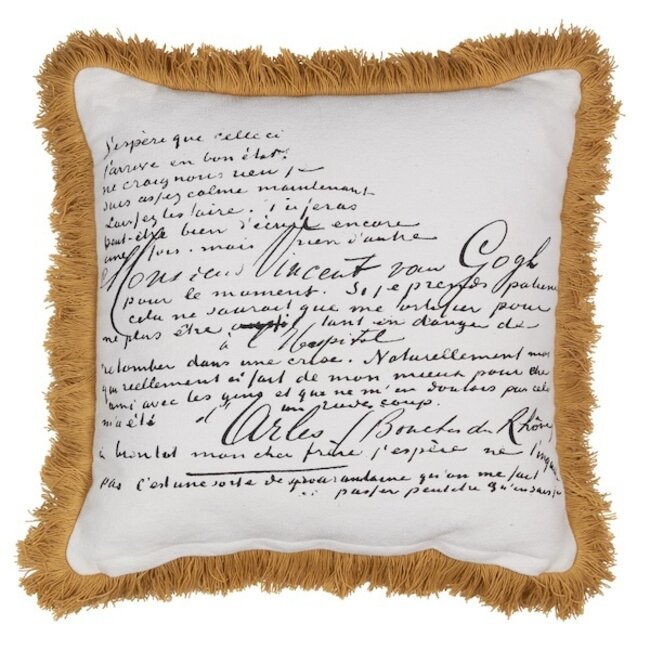 J'espère que celle ci
t'arrive en bon état.
ne craignons rien je
suis assez calme maintenant
Laissez les faire. Tu feras
peut-être bien d'écrire encore
une fois. mais rien d'autre
Monsieur Vincent van Gogh
pour le moment. Si je prends patience
cela ne saurait que me fortifier pour
ne plus être tant en danger de
à l'Hopital
retomber dans une crise. Naturellement moi
qui reellement ai fait de mon mieux pour être
ami avec les gens et que ne m'en doutais pas cela
m'a été un rude coup.
d'Arles (Bouches du Rhône
à bientot mon cher frère, j'espère ne t'inquiète
pas c'est une sorte de quarantaine qu'on me fait
passer peutetre